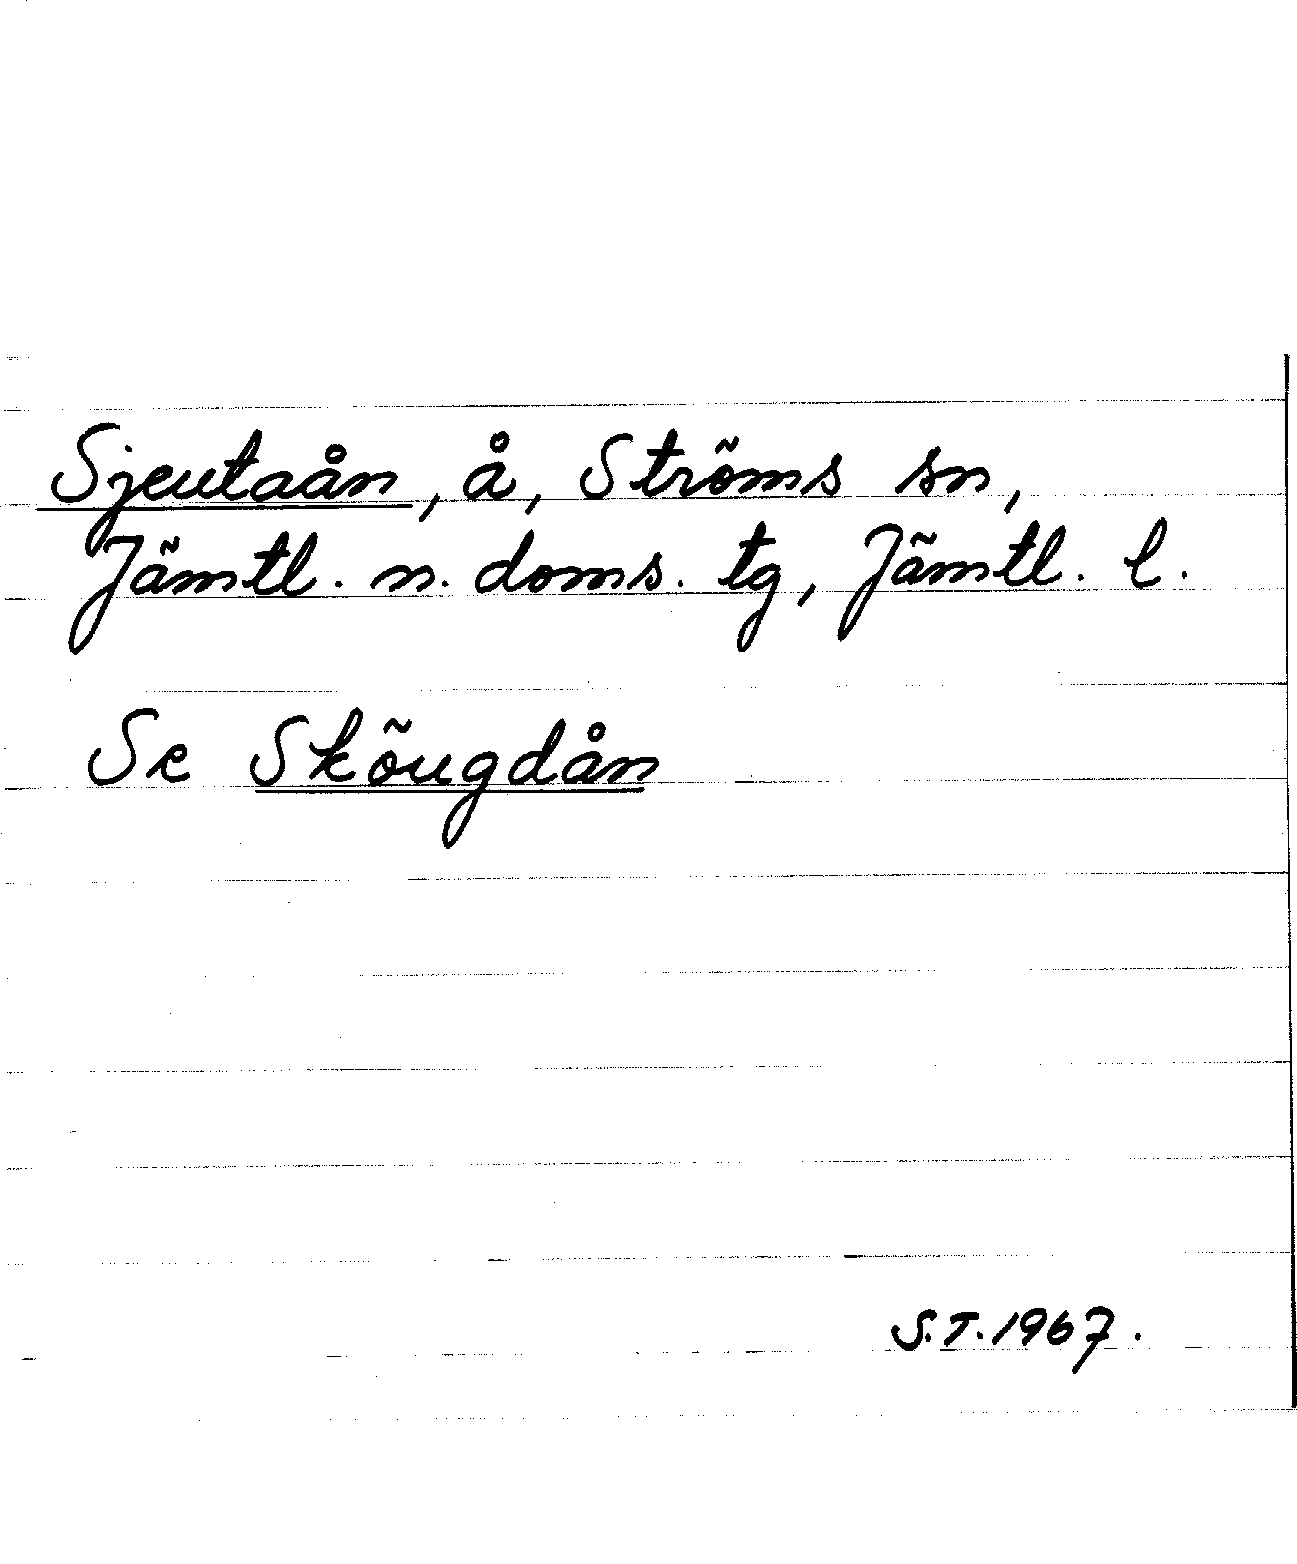 Sjeutaån, å, Ströms sn,
Jämtl. n. doms. tg, Jämtl. l.
Se Sköugdån
S.T. 1967.